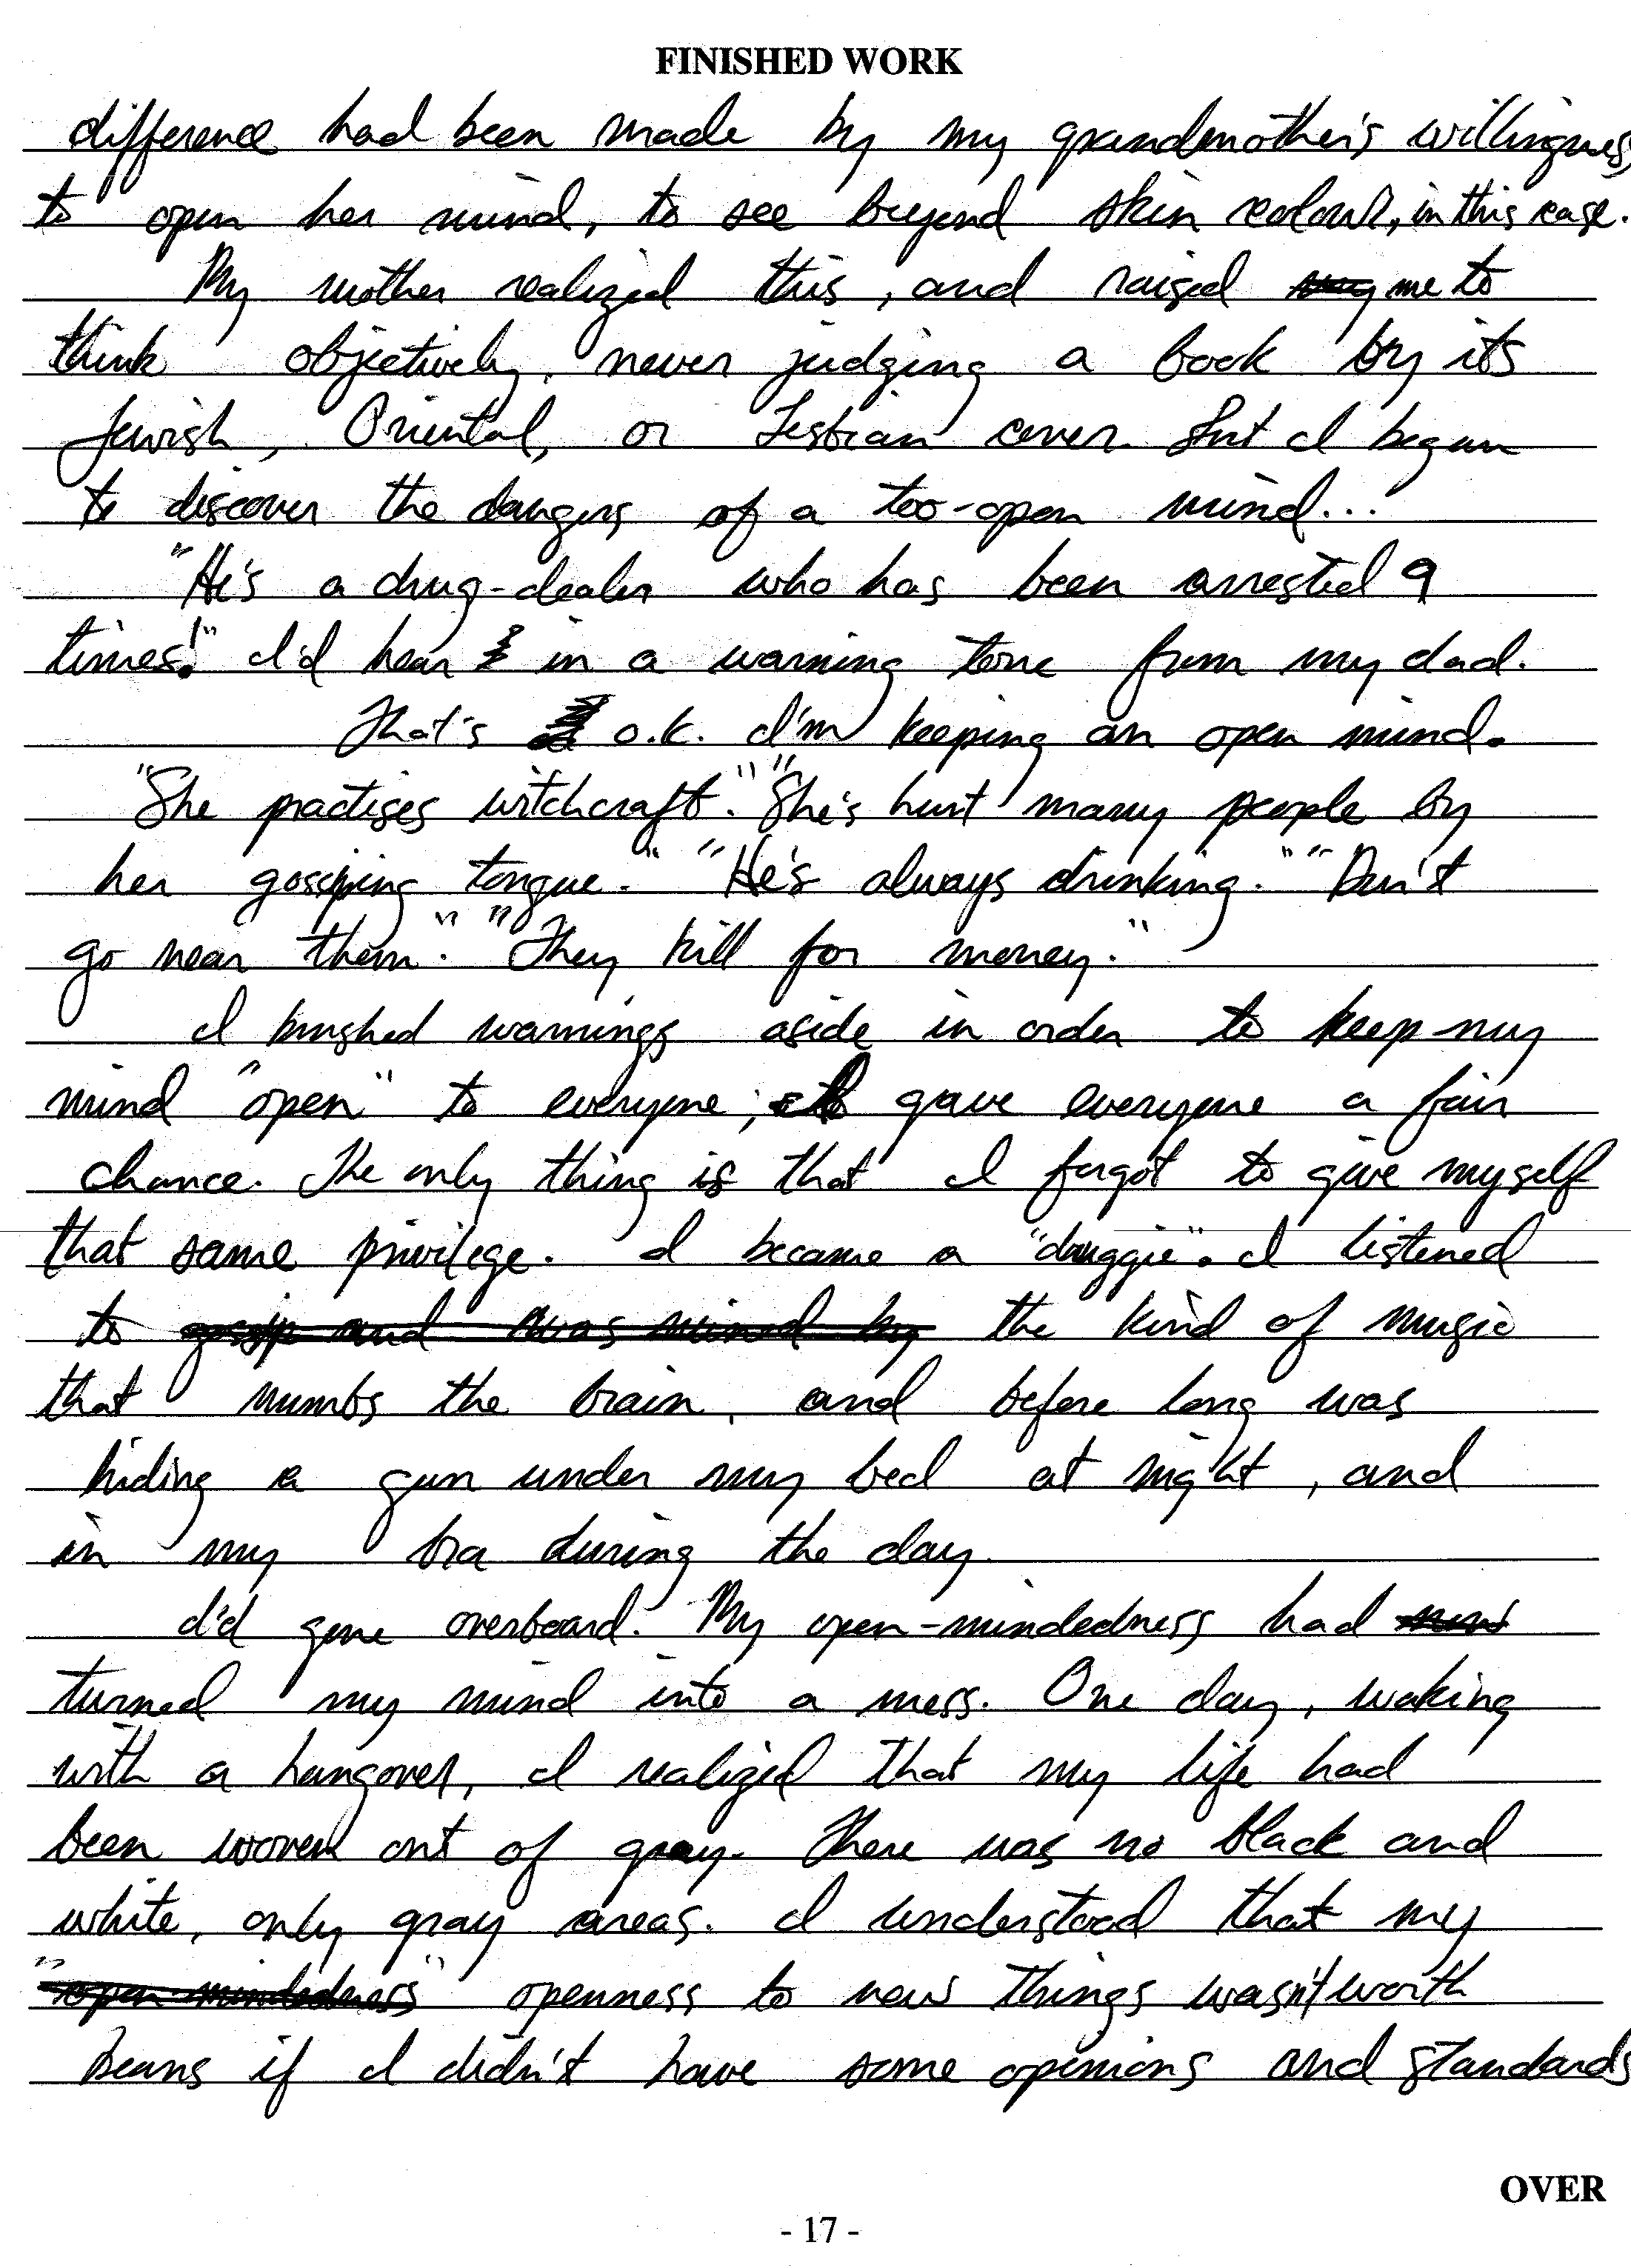 FINISHED WORK
difference had been made by my grandmother's willingness
to open her mind, to see beyond skin colour, in this case.
My mother realized this, and raised me to
think objectively, never judging a book by its
Jewish, Oriental, or Lesbian cover. But I began
to discover the dangers of a too-open mind...
"He's a drug-dealer who has been arrested 9
times!" I'd hear in a warning tone from my dad.
That's o.k. I'm keeping an open mind.
"She practises witchcraft." "She's hurt many people by
her gossiping tongue." "He's always drinking." "Don't
go near them." "They kill for money."
I brushed warnings aside in order to keep my
mind "open" to everyone; I gave everyone a fair
chance. The only thing is that I forgot to give myself
that same privilege. I became a "druggie". I listened
to gossip and was ruined by the kind of music
that numbs the brain, and before long was
hiding a gun under my bed at night, and
in my bra during the day.
I'd gone overboard. My open-mindedness had
turned my mind into a mess. One day, waking
with a hangover, I realized that my life had
been woven out of gray. There was no black and
white, only gray areas. I understood that my
"open-mindedness" openness to new things wasn't worth
beans if I didn't have some opinions and standards
OVER
- 17 -